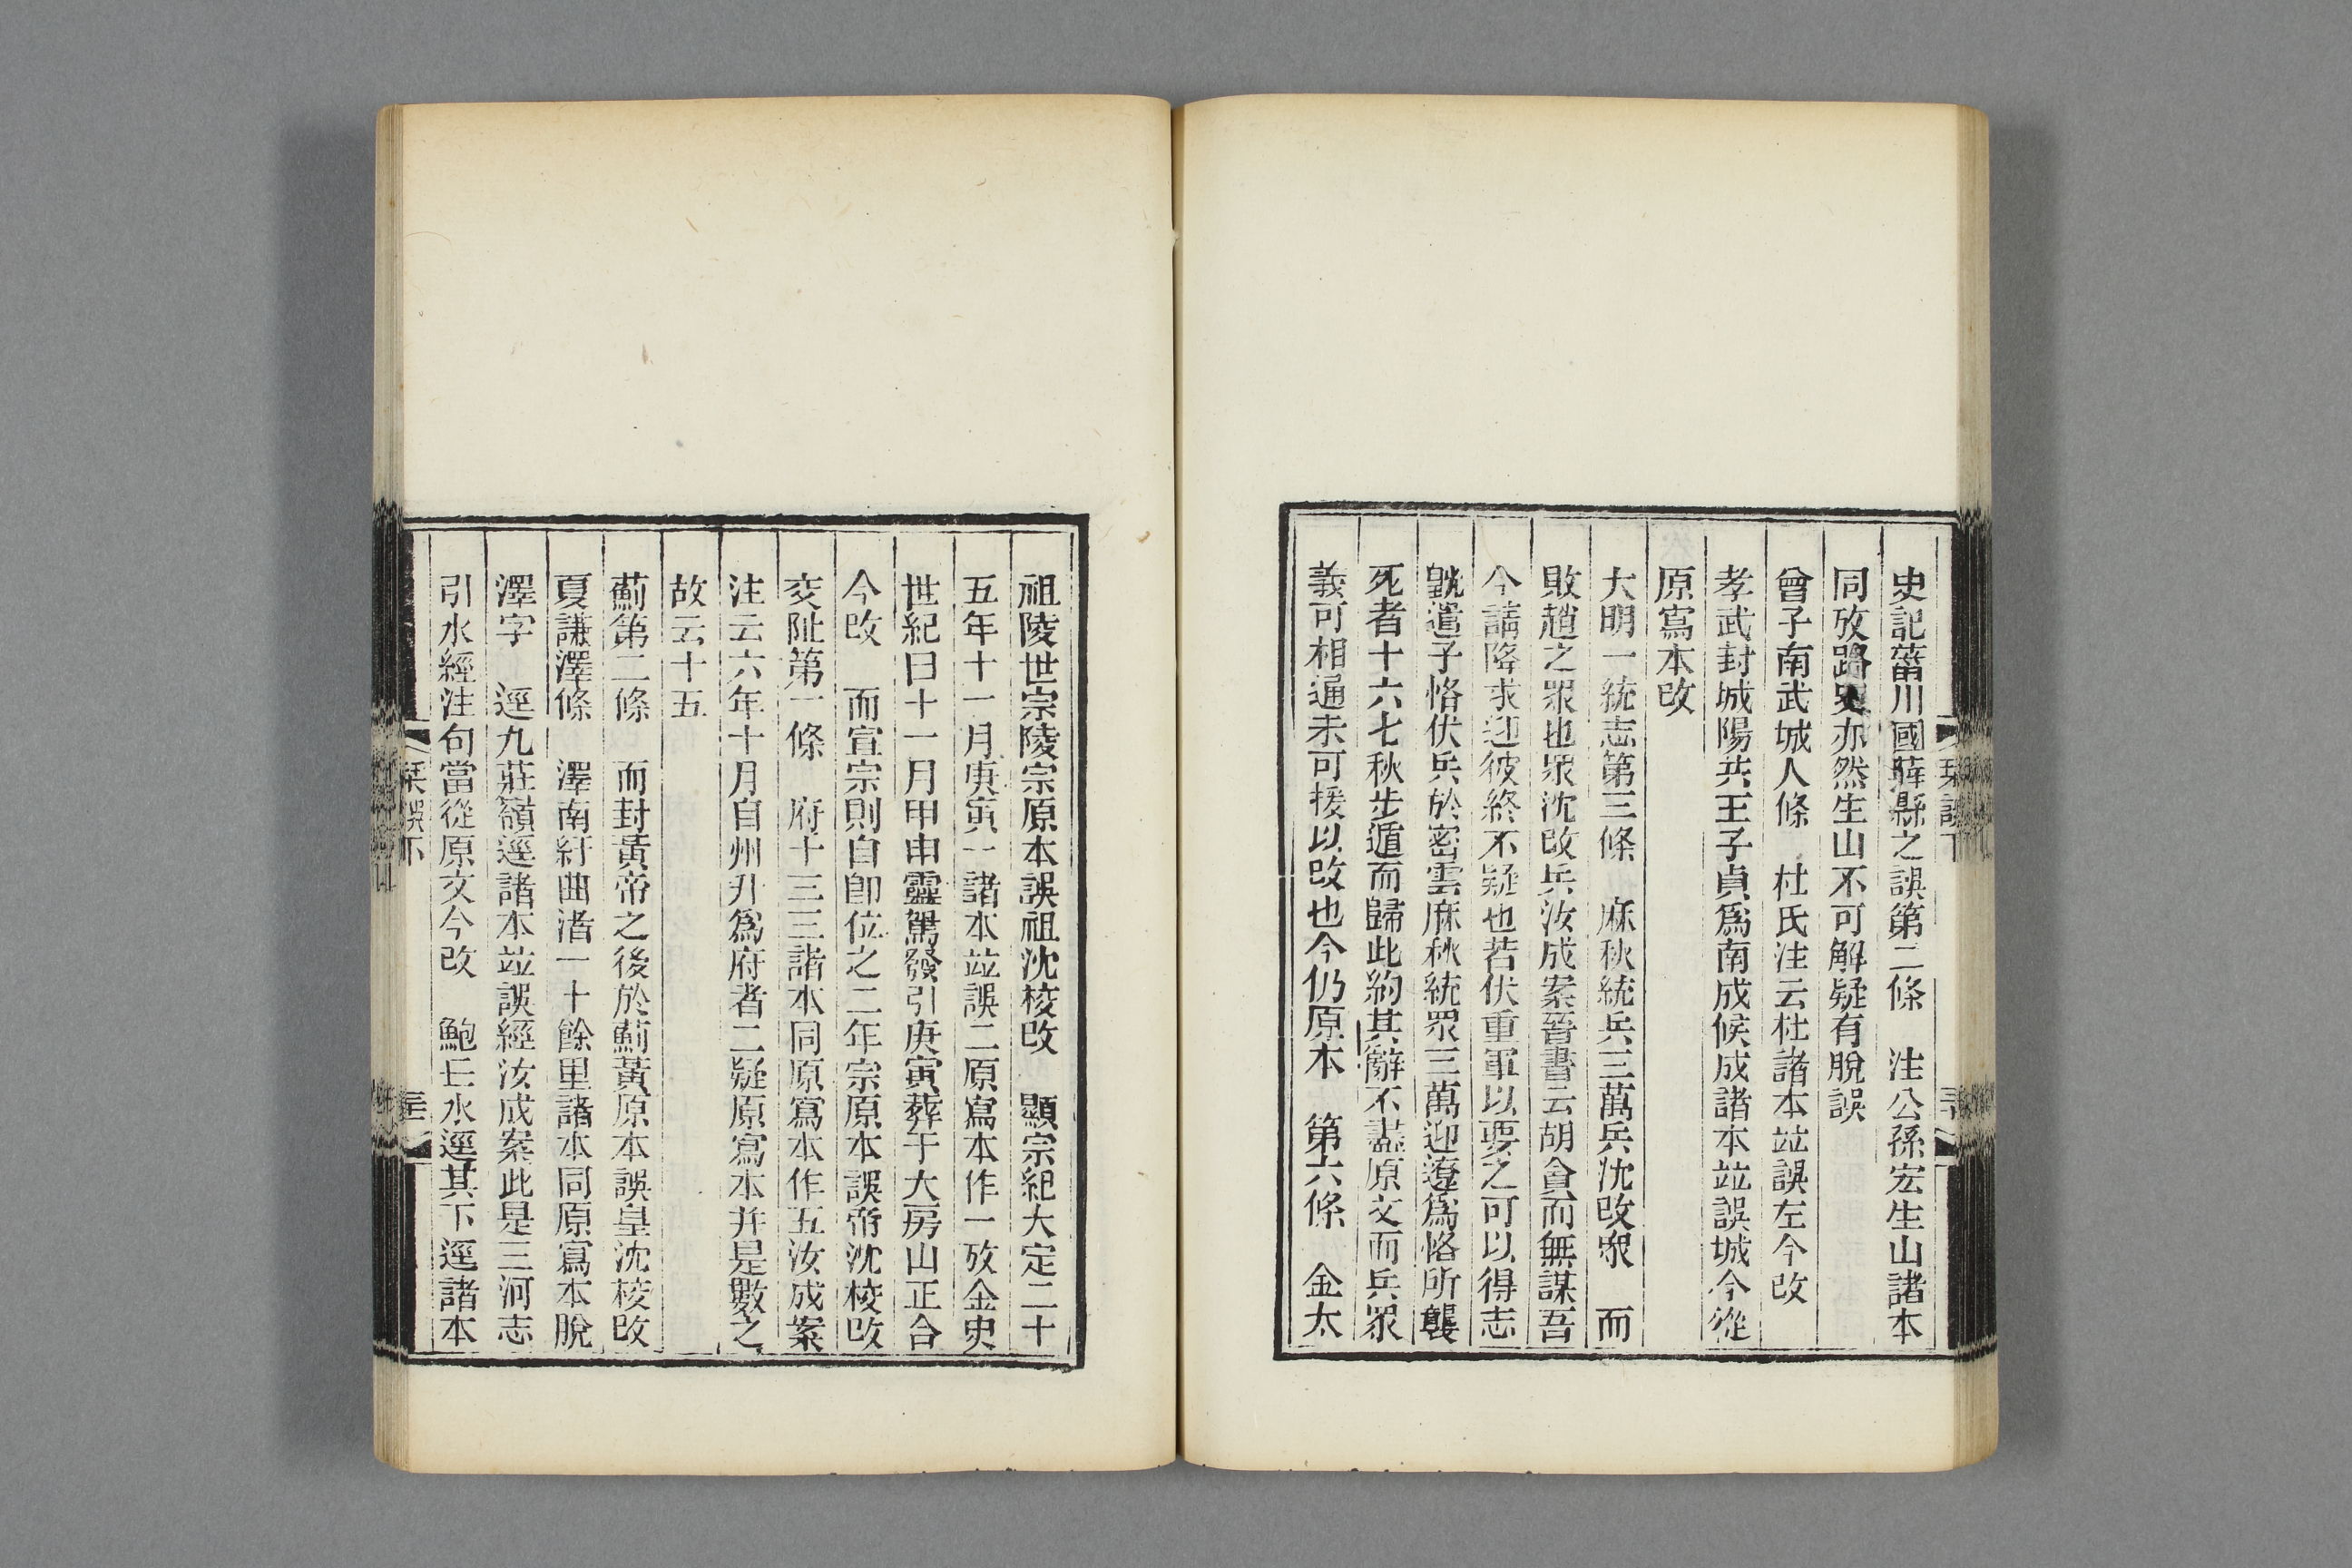 史記菑川國薛縣之誤第二條　注公孫宏生山諸本
同攷路史亦然生山不可解疑有脫誤
曾子南武城人條　杜氏注云杜諸本竝誤左今改
孝武封城陽共王子貞爲南成侯成諸本竝誤城今從
原寫本改
大明一統志第三條　麻秋統兵三萬兵沈改衆　而
敗趙之眾也眾沈改兵汝成案晉書云胡會而無謀吾
今請降求迎彼終不疑也若伏重軍以要之可以得志
皝遣子恪伏兵於密雲麻秋統眾三萬迎遼爲恪所襲
死者十六七秋步遁而歸此約其辭不盡原文而兵眾
義可相通未可援以改也今仍原本　第六條　金太
祖陵世宗陵宗原本誤祖沈校改　顯宗紀大定二十
五年十一月庚寅一諸本竝誤二原寫本作一攷金史
世紀曰十一月甲申靈駕發引庚寅葬于大房山正合
今改　而宣宗則自卽位之二年宗原本誤帝沈校改
交阯第一條　府十三三諸本同原寫本作五汝成案
注云六年十月自州升爲府者二疑原寫本并是數之
故云十五
薊第二條　而封黃帝之後於薊黃原本誤皇沈校改
夏謙澤條　澤南紆曲渚一十餘里諸本同原寫本脫
澤字　逕九莊嶺逕諸本竝誤經汝成案此是三河志
引水經注句當從原文今改　鮑王水逕其下逕諸本